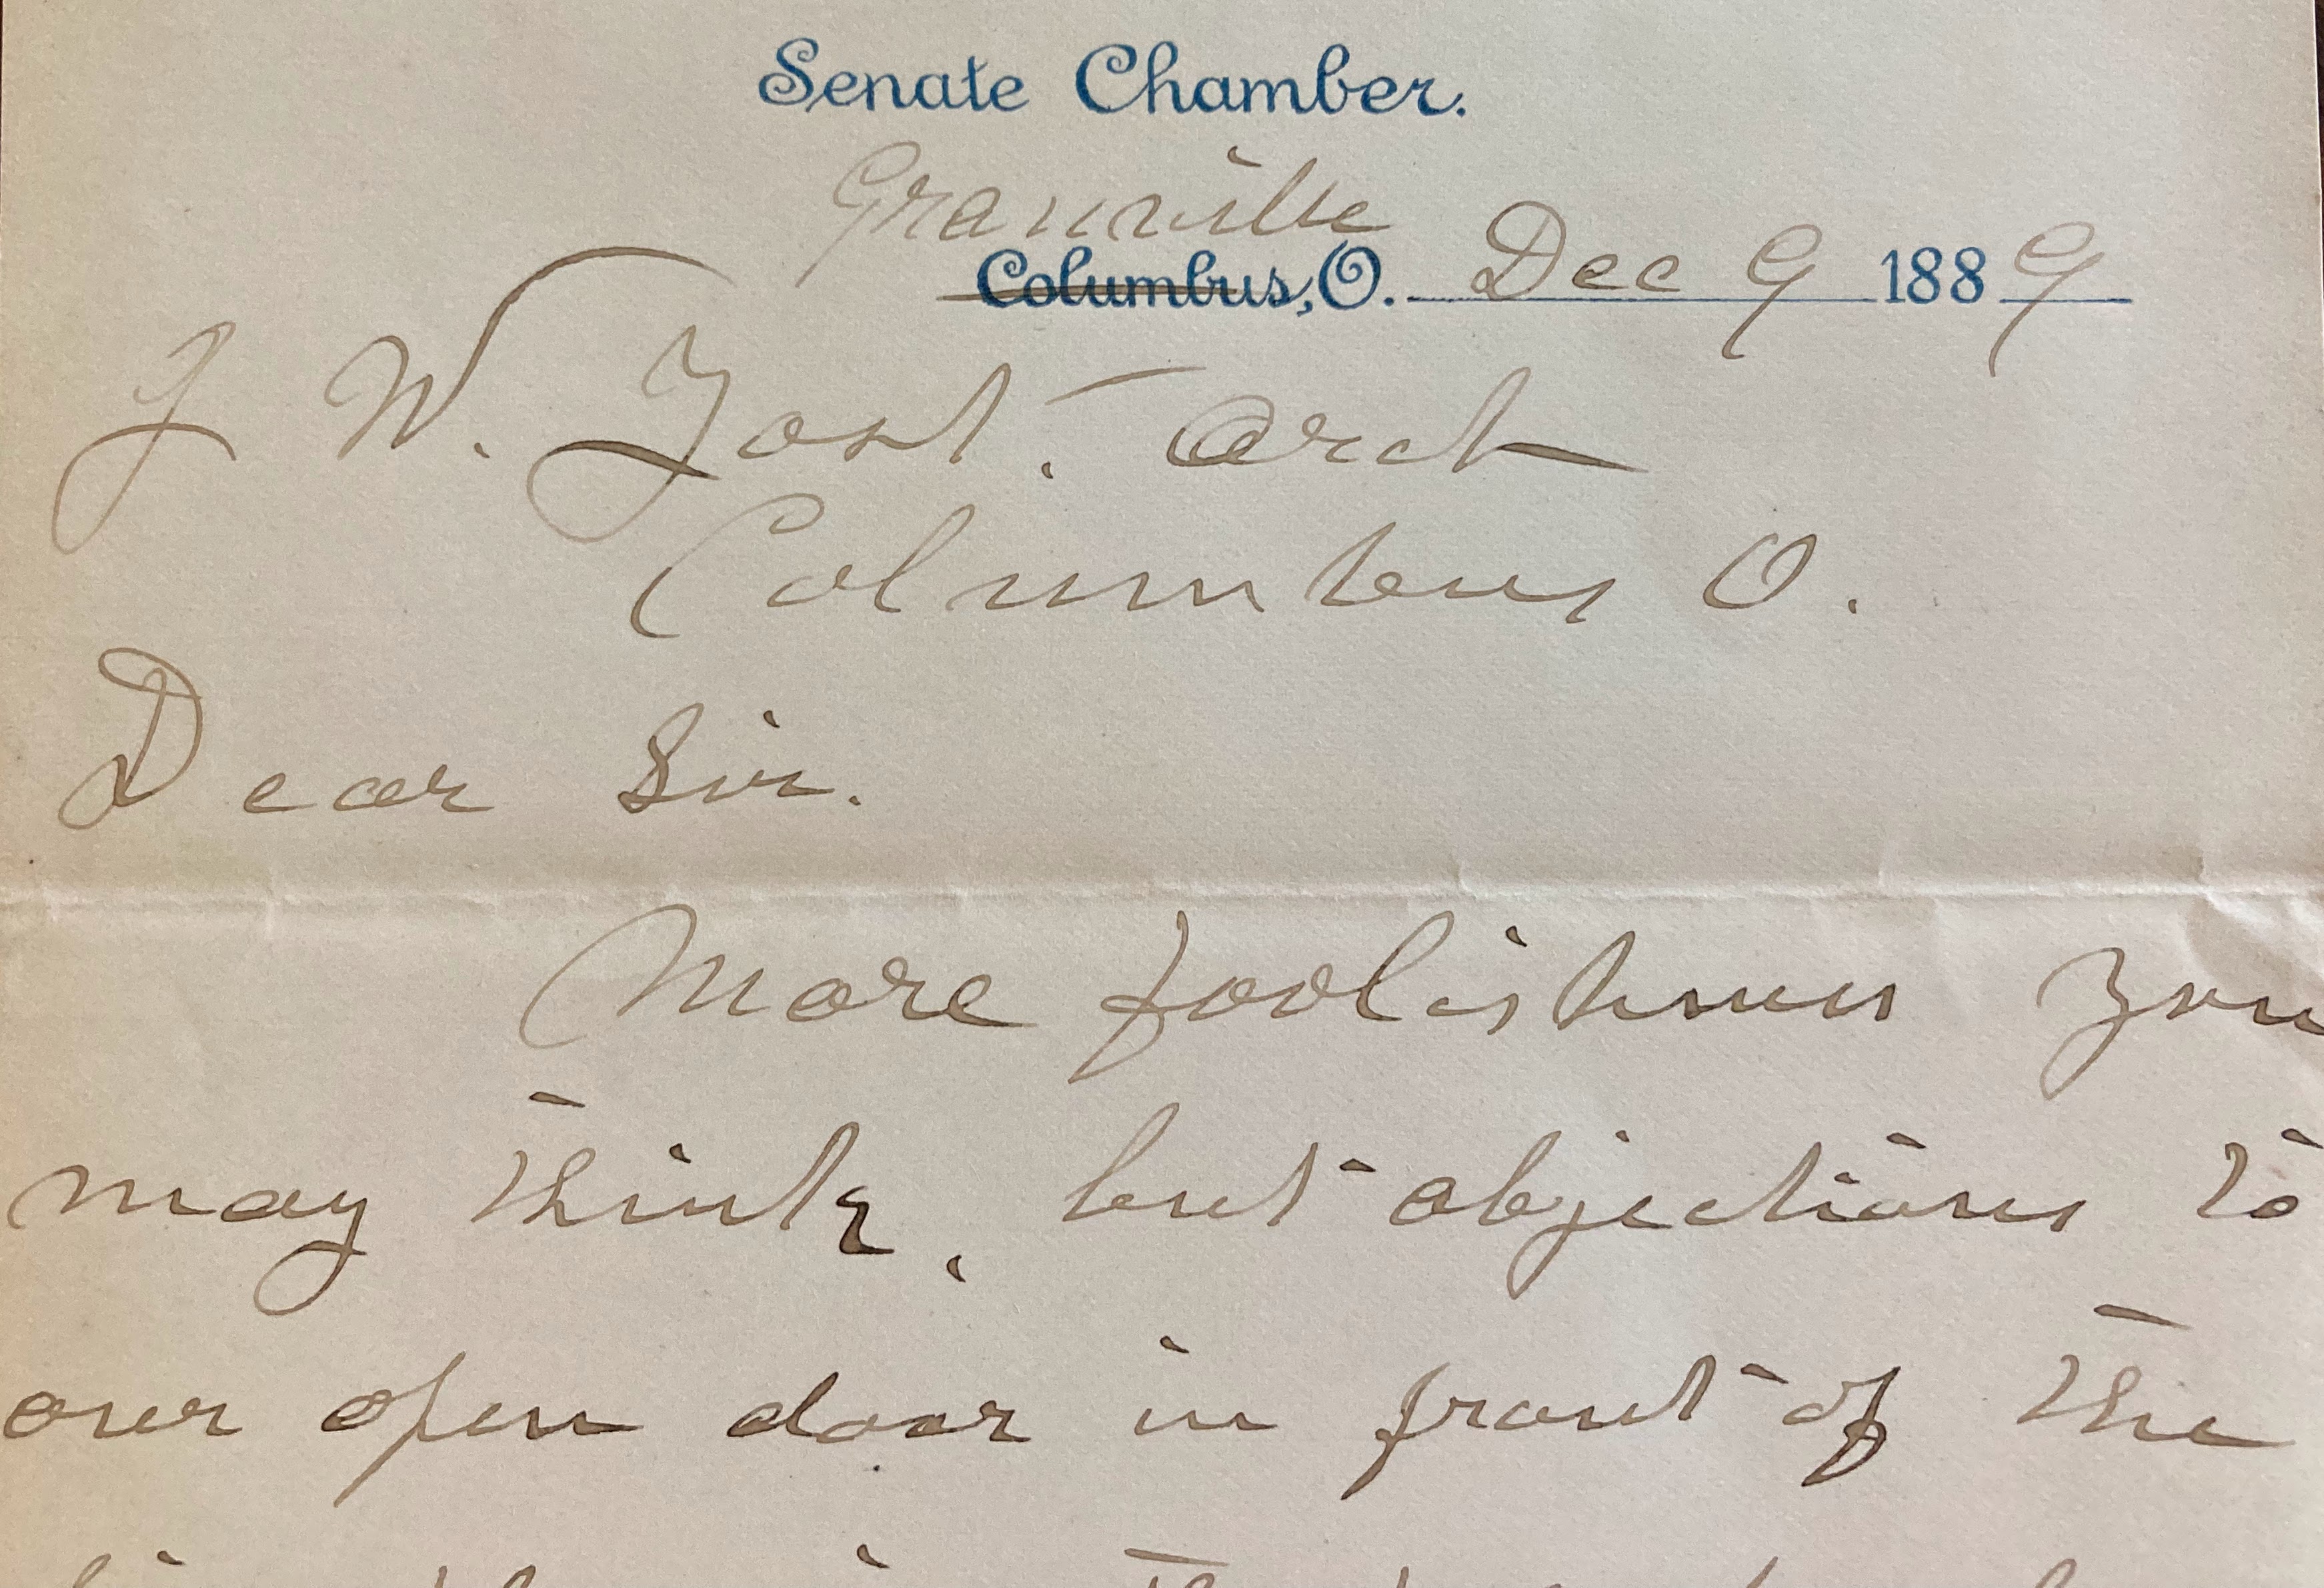 Senate Chamber.
Granville
Columbus, O. Dec 9 1889
J W. Yost. Arch
Columbus O.
Dear Sir.
More foolishness you
may think, but objections to
our open door in front of the